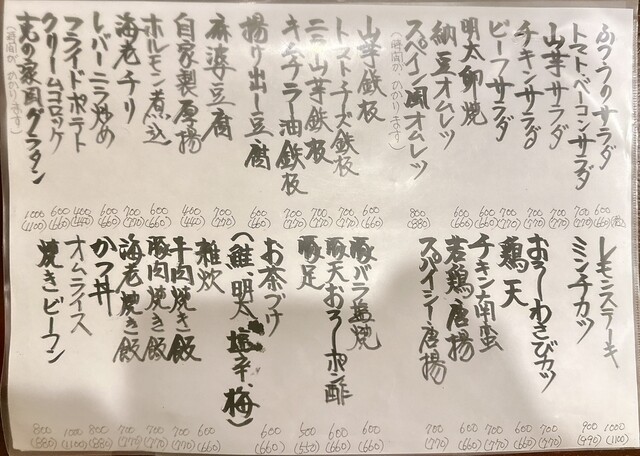 ふつうのサラダ 600 (660)
トマトベーコンサラダ 700 (770)
山芋サラダ 700 (770)
チキンサラダ 700 (770)
ビーフサラダ 700 (770)
明太卵焼 600 (660)
納豆オムレツ 600 (660)
スペイン風オムレツ 800 (880)
(時間がかかります)
山芋鉄板 600 (660)
トマトチーズ鉄板 700 (770)
山芋鉄板 700 (770)
キムチラー油鉄板 700 (770)
揚げ出し豆腐 600 (660)
麻婆豆腐 700 (770)
自家製厚揚 400 (440)
ホルモン煮込 600 (660)
海老チリ 700 (770)
レバーニラ炒め 600 (660)
フライドポテト 400 (440)
クリームコロッケ 600 (660)
克の家風グラタン 1000 (1100)
(時間がかかります)
レモンステーキ 1000 (1100)
ミンチカツ 900 (990)
おろしわさびカツ 700 (770)
鶏天 600 (660)
チキン南蛮 700 (770)
若鶏唐揚 600 (660)
スパイシー唐揚 700 (770)
豚バラ塩焼 600 (660)
豚天おろしポン酢 600 (660)
豚足 500 (550)
お茶づけ 600 (660)
(鮭、明太、塩辛、梅)
雑炊 600 (660)
牛肉焼き飯 700 (770)
豚肉焼き飯 700 (770)
海老焼き飯 700 (770)
かつ丼 800 (880)
オムライス 1000 (1100)
焼きビーフン 800 (880)